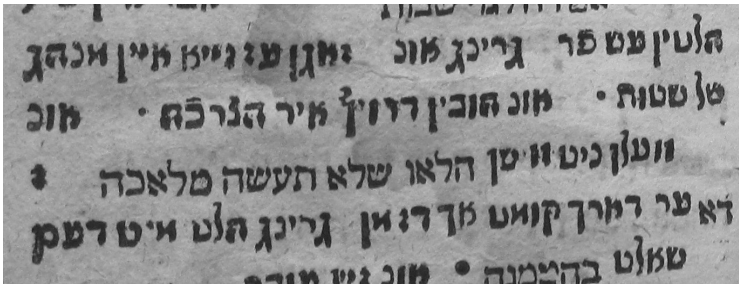 הלטין עש פר גרינג אונ זאגן עז זייא איין מנהג
של שטות . אונ הובין דרויף איר . אונ
וועלן ניט וויסן הלאו שלא תעשה מלאכה :
דא ער דארך קומט אך דז מן גרינג הלט מיט דעם
שאלט בהטמנה • אונ